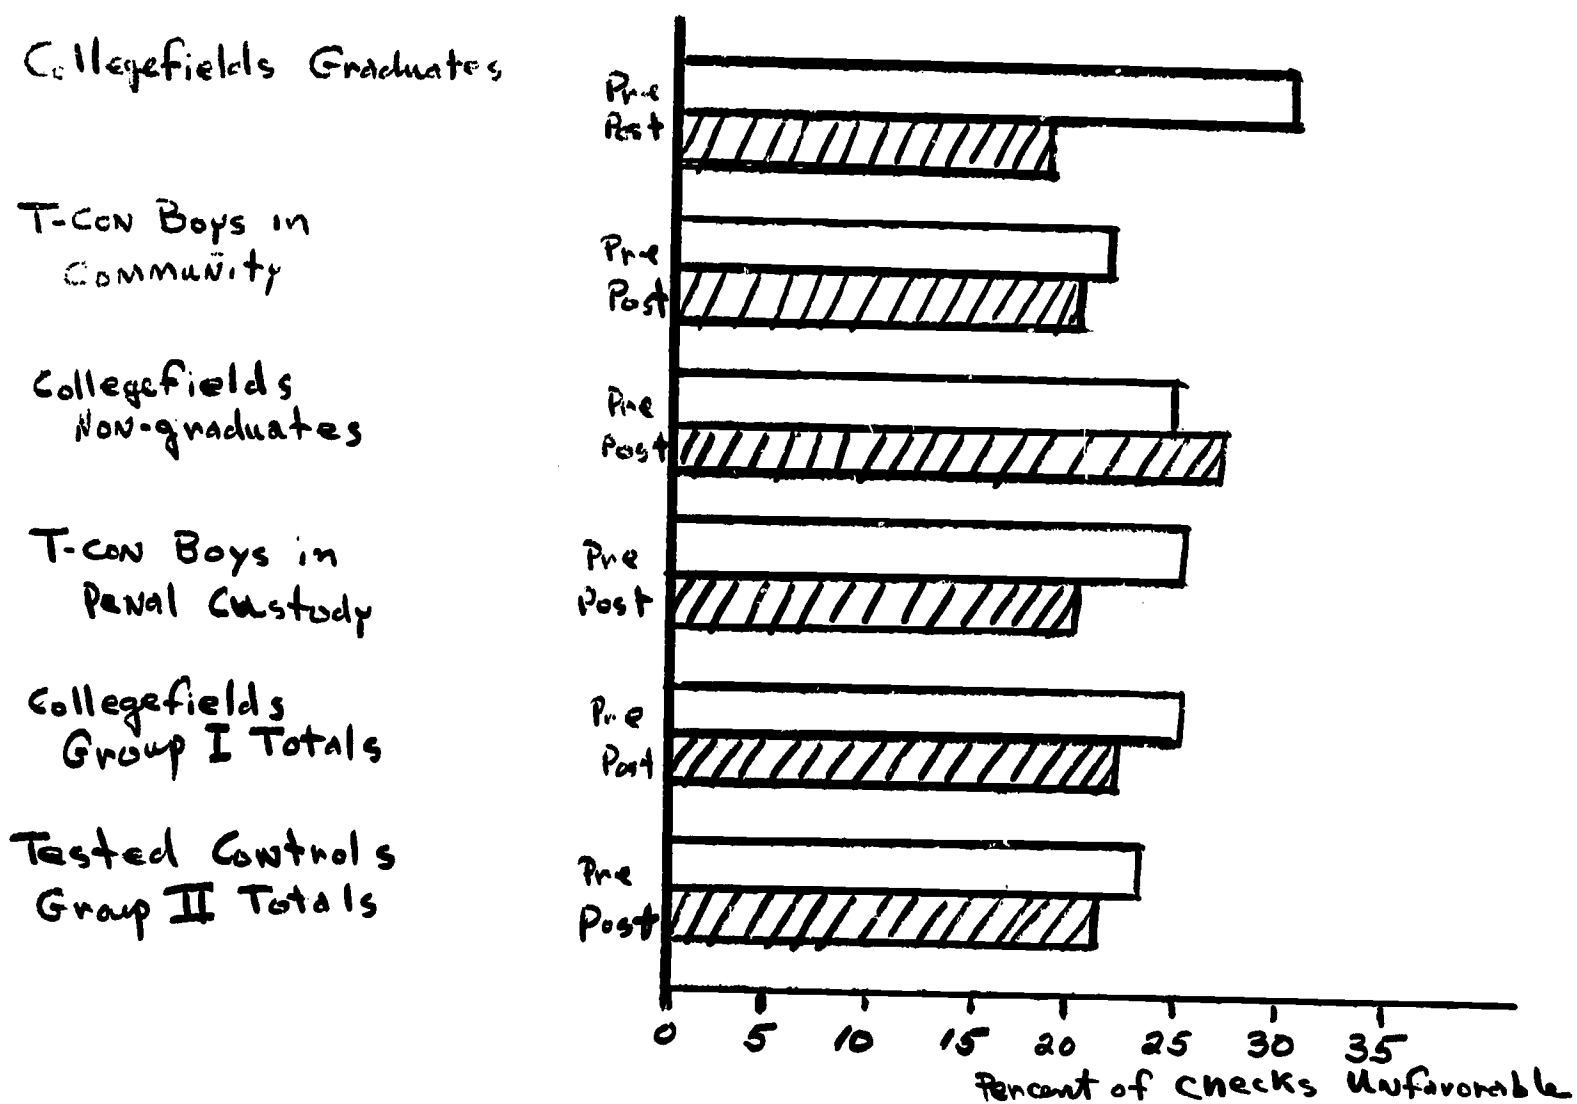 Collegefields Graduates
Pre
Post
T-CON Boys in
Community
Pre
Post
Collegefields
Non-graduates
Pre
Post
T-CON Boys in
Penal Custody
Pre
Post
Collegefields
Group I Totals
Pre
Post
Tested Controls
Group II Totals
Pre
Post
0 5 10 15 20 25 30 35
Percent of checks Unfavorable